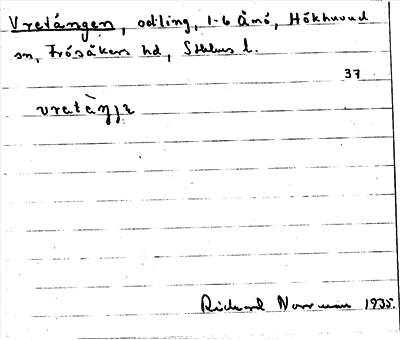 Vretängen, odling, 1-6 Åmö, Hökhuvud
sn, Frösåkers hd, Sthlms l.
37
vretàŋɟɛ
Rickard Norrman 1935.